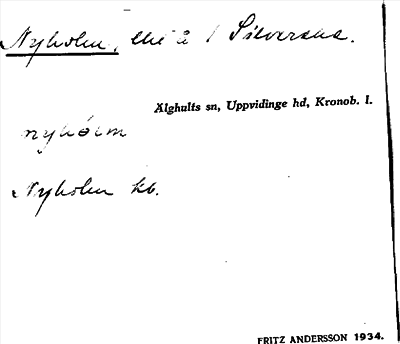 Nyholm, lht å 1 Silversns.
Älghults sn, Uppvidinge hd, Kronob. l.
nyhólm
Nyholm kb.
FRITZ ANDERSSON 1934.